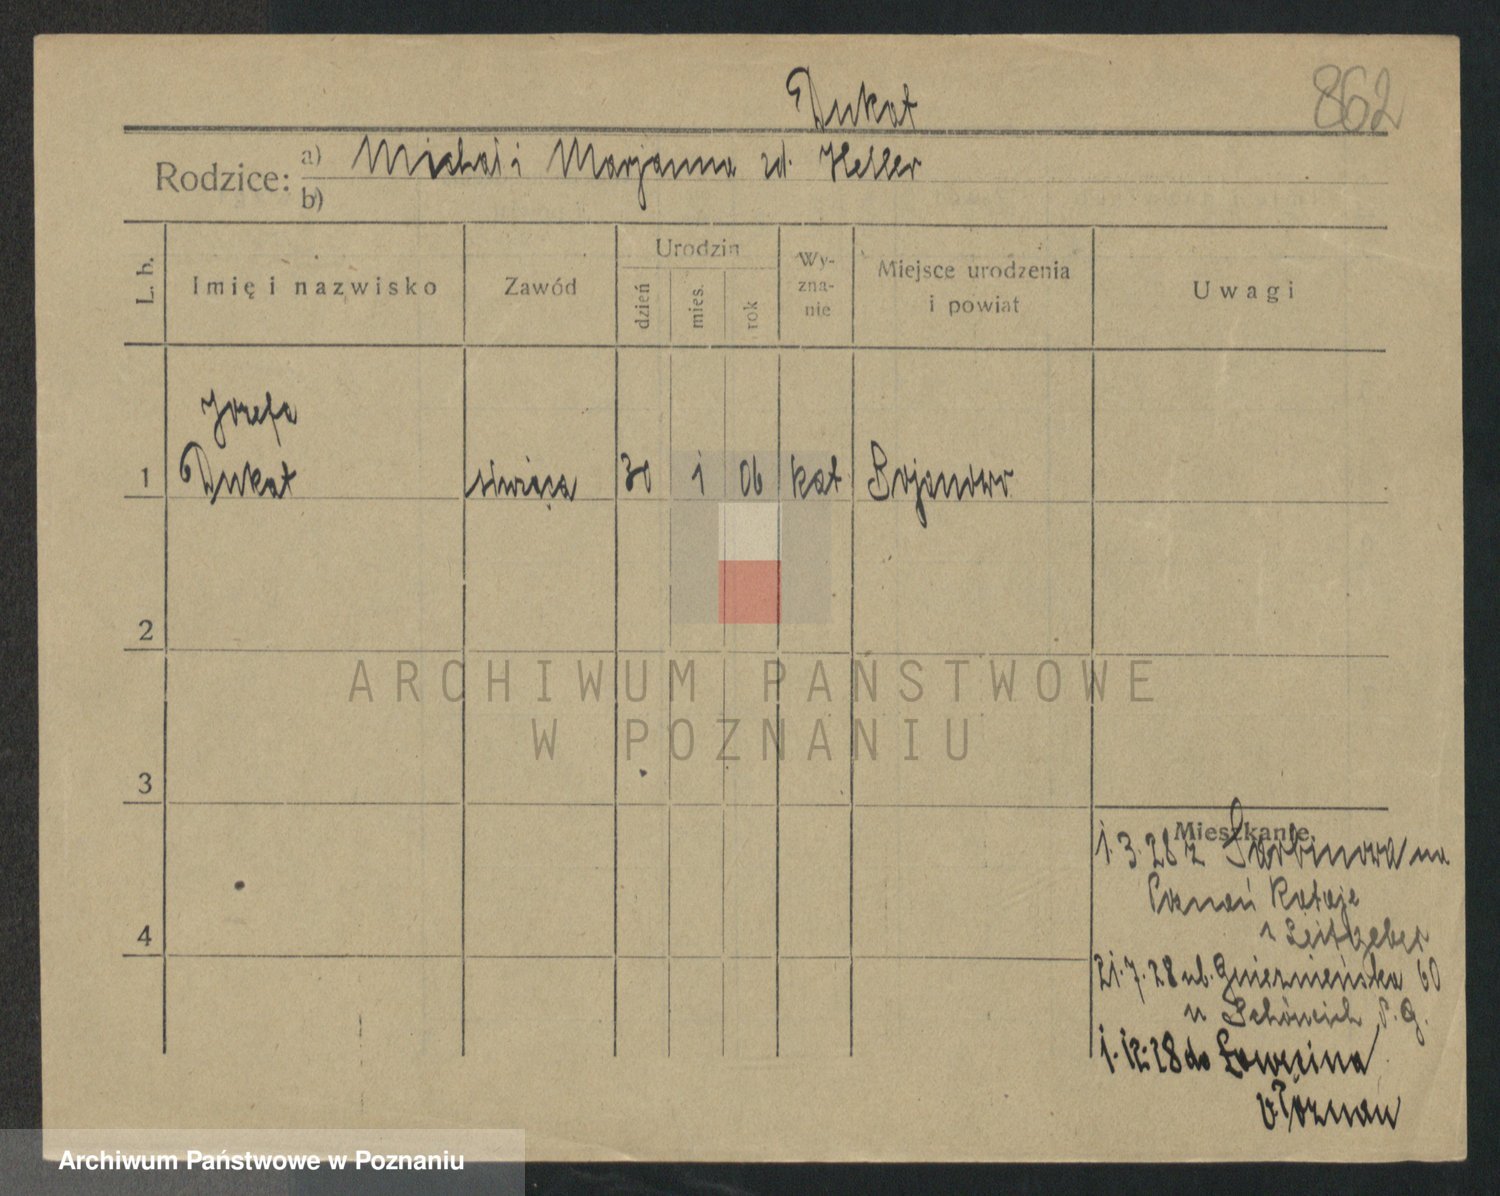 862
Dukat
Rodzice: a) Michał i Marjanna zd. Heller
b)
L. b. Imię i nazwisko Zawód Urodzin dzień mies. rok Wyzna-nie Miejsce urodzenia i powiat Uwagi
Józefa
1 Dukat służąca 30 1 06 kat Bojanowo
2
3
4
Mieszkanie
1.3.28 z Sarbinowa na
Poznań Rataje
u Leitgeber
21.7.28 ul. Gnieźnieńska 60
u Schöneich P. G.
1.12.28 do Ławicina
p. Poznań
ARCHIWUM PAŃSTWOWE
W POZNANIU
Archiwum Państwowe w Poznaniu